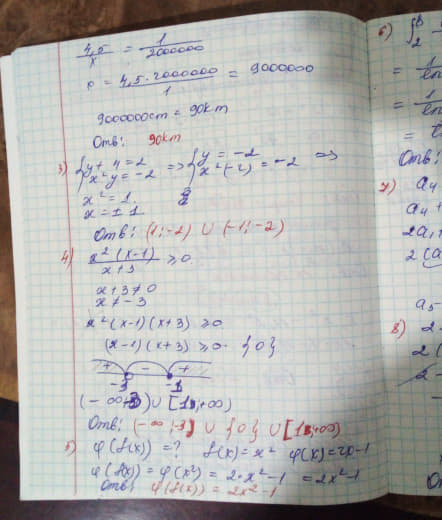 4,5/x = 1/2000000
x = 4,5·2000000/1 = 9000000
9000000cm = 90km
Отв: 90km
3) {y + 4 = 2 => {y = -2 =>
x²y = -2 x²(-2) = -2
x² = 1
x = ± 1
Отв: (1; -2) ∪ (-1; -2)
4) x²(x-1)/x+3 ≥ 0
x+3 ≠ 0
x ≠ -3
x²(x-1)(x+3) ≥ 0
(x-1)(x+3) ≥ 0 {0}
+ - +
-3 1
(-∞;-3) ∪ [1;+∞)
Отв: (-∞;-3) ∪ {0} ∪ [1;+∞)
5) φ(f(x)) = ? f(x) = x² φ(x) = 2x-1
φ(f(x)) = φ(x²) = 2·x²-1 = 2x²-1
Отв: φ(f(x)) = 2x²-1
6) ∫
2
= 1
= 1
=
Отв:
7) a₄
a₄ +
2a₁+
2(a
a₅-
8) 2
2(